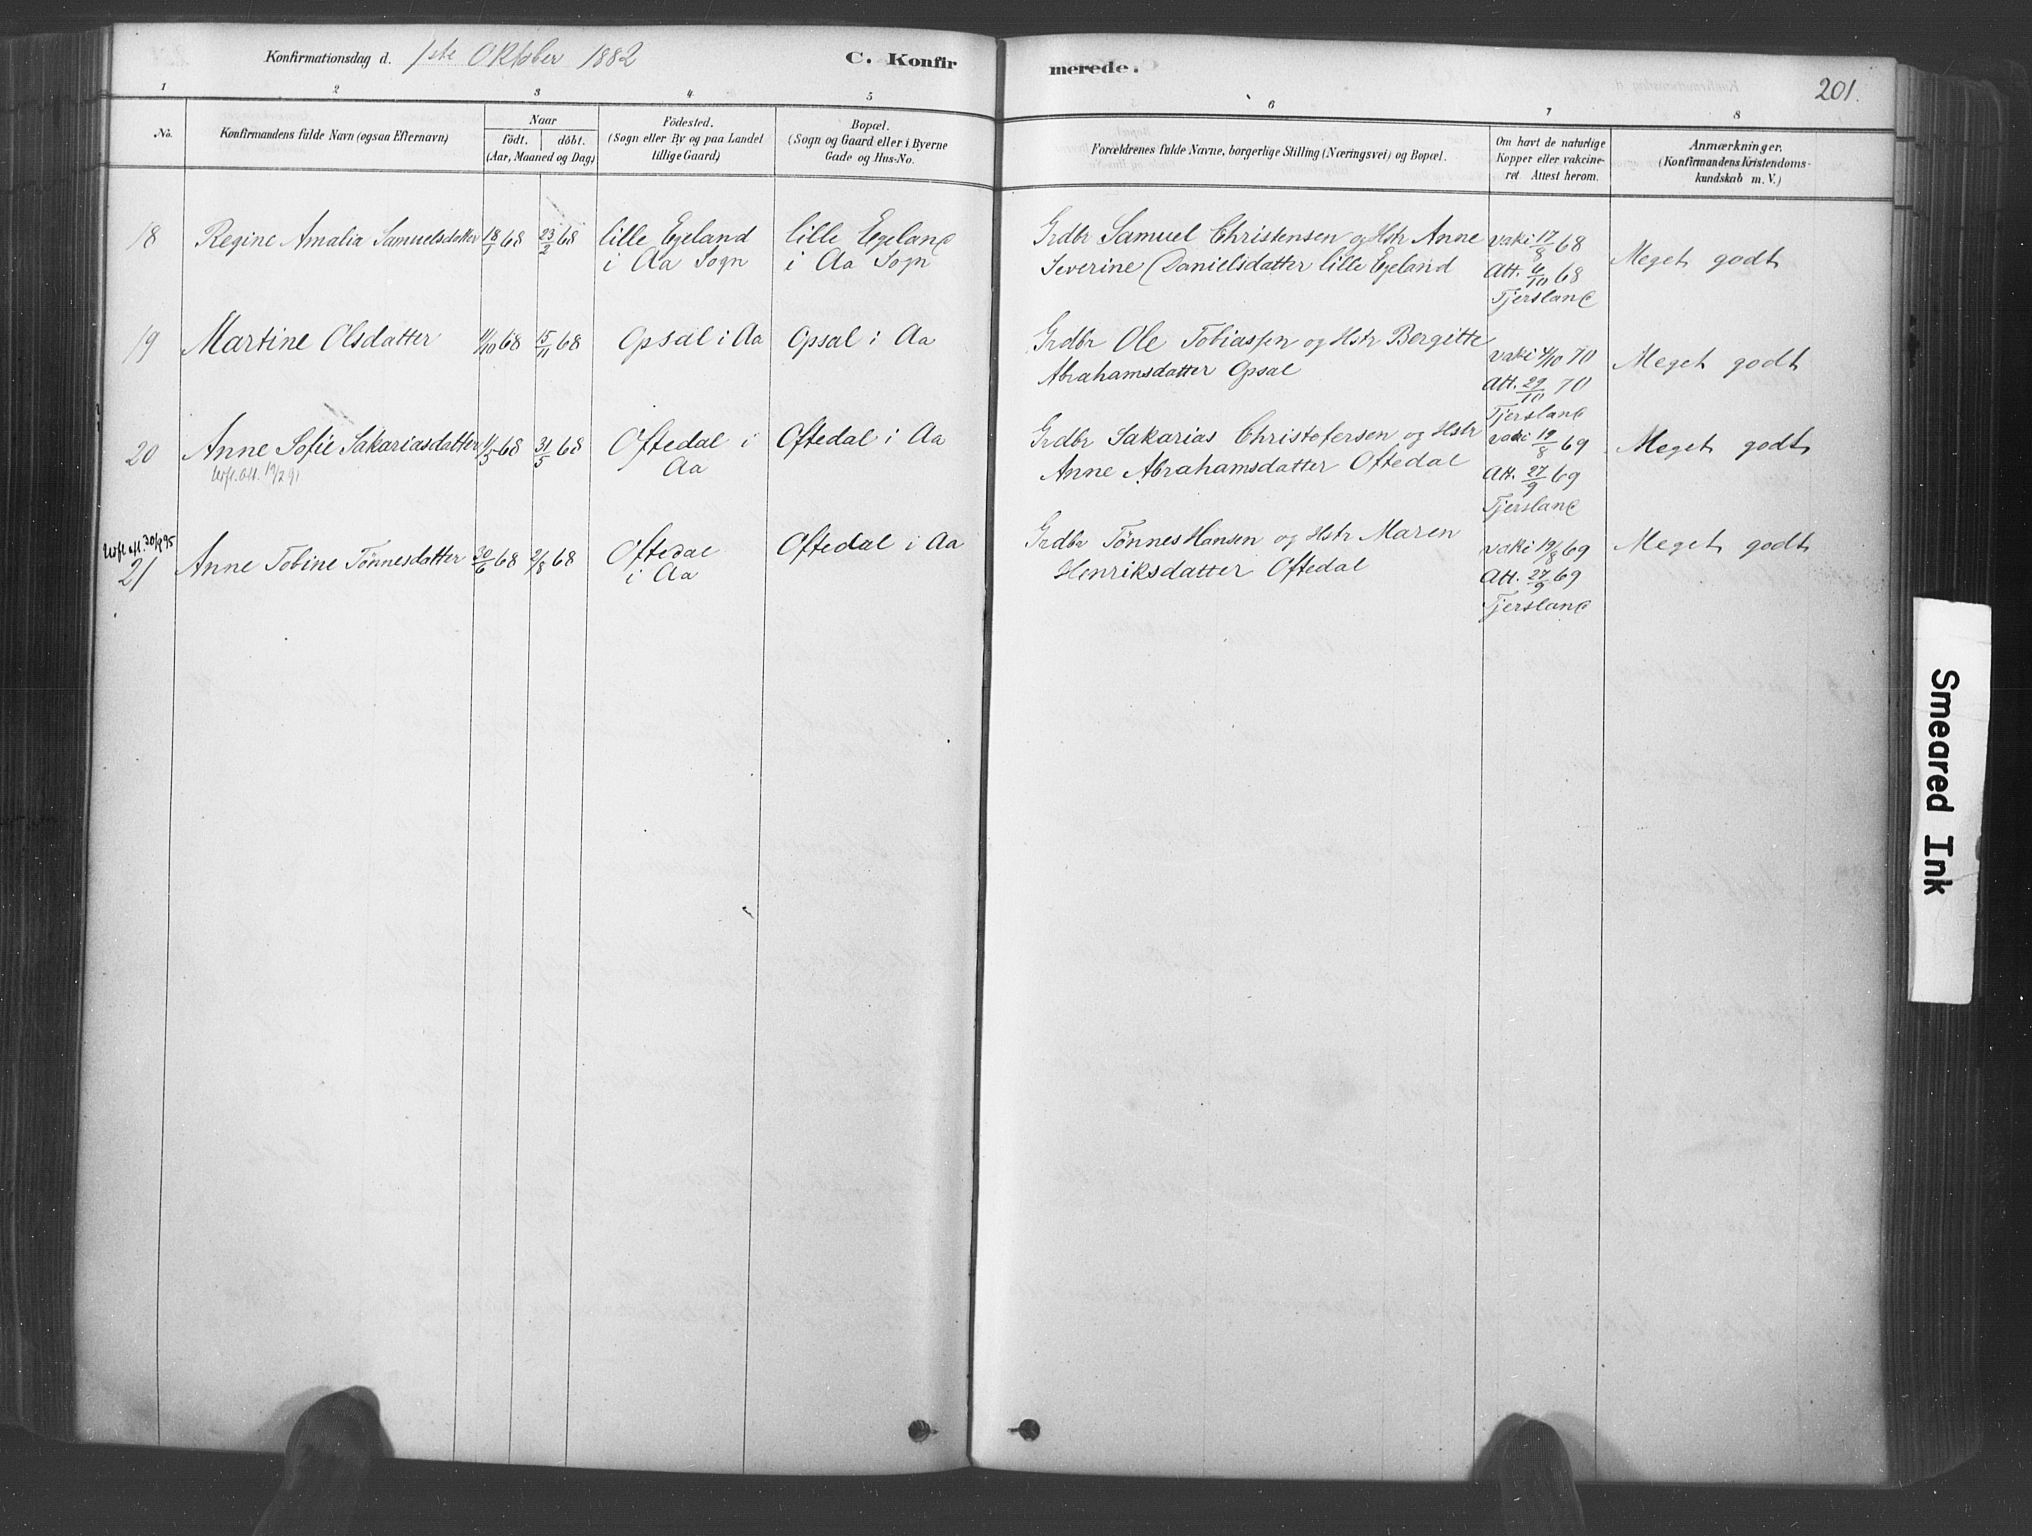 Konfirmationsdag d. 1ste Oktober 1882
C. Konfirmerede.
201.
1 2 3 4 5 6 7 8
No.
Konfirmandens fulde Navn (ogsaa Efternavn)
Naar
födt. döbt.
(Aar, Maaned og Dag)
Födested.
(Sogn eller By og paa Landet
tillige Gaard)
Bopæl.
(Sogn og Gaard eller i Byerne
Gade og Hus-No.
Forældrenes fulde Navne, borgerlige Stilling (Næringsvei) og Bopæl.
Om havt de naturlige
Kopper eller vakcine-
ret. Attest herom.
Anmærkninger.
(Konfirmandens Kristendoms-
kundskab m. V.)
18 Regine Amalia Samuelsdatter 18/9 68 23/2 68 lille Egeland
i Aa Sogn
lille Egeland
i Aa Sogn
Grdbr Samuel Christensen og Hstr Anne
Severine Danielsdatter lille Egeland
vaki 17/8 68
Att. 6/10 68
Tjersland
Meget godt
19 Martine Olsdatter 11/10 68 15/11 68 Opsal i Aa Opsal i Aa
Grdbr Ole Tobiassen og Hstr Bergitte
Abrahamsdatter Opsal
vaki 4/10 70
Att. 29/10 70
Tjersland
Meget godt
20 Anne Sofie Sakariasdatter 11/5 68 31/5 68 Oftedal i
Aa
Oftedal i Aa
Utfl. att. 19/2 91
Grdbr Sakarias Christofersen og Hstr
Anne Abrahamsdatter Oftedal
vaki 19/8 69
Att. 27/9 69
Tjersland
Meget godt
21 Anne Tobine Tønnesdatter 30/6 68 2/8 68 Oftedal
i Aa
Oftedal i Aa
Grdbr Tønnes Hansen og Hstr Maren
Henriksdatter Oftedal
vaki 19/8 69
Att. 27/9 69
Tjersland
Meget godt
Smeared Ink